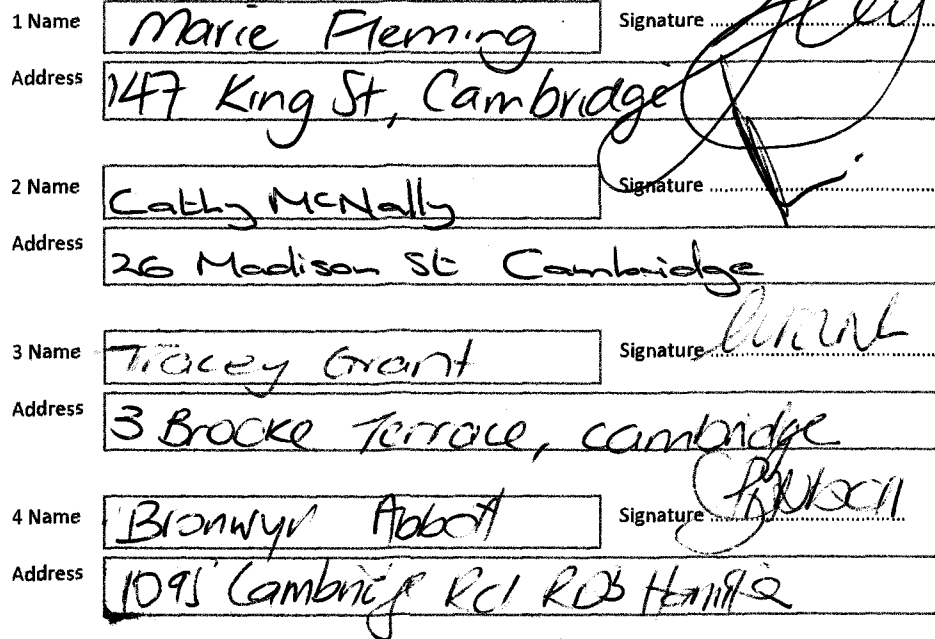 1 Name Marie Fleming Signature
Address 147 King St, Cambridge
2 Name Cathy McNally Signature
Address 26 Madison St Cambridge
3 Name Tracey Grant Signature
Address 3 Brooke Terrace, Cambridge
4 Name Bronwyn Abbott Signature
Address 1095 Cambridge Rd RD3 Hamilton